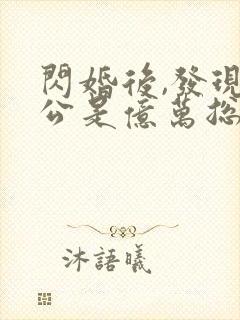 閃婚後,發現
公是億萬總
沐語曦